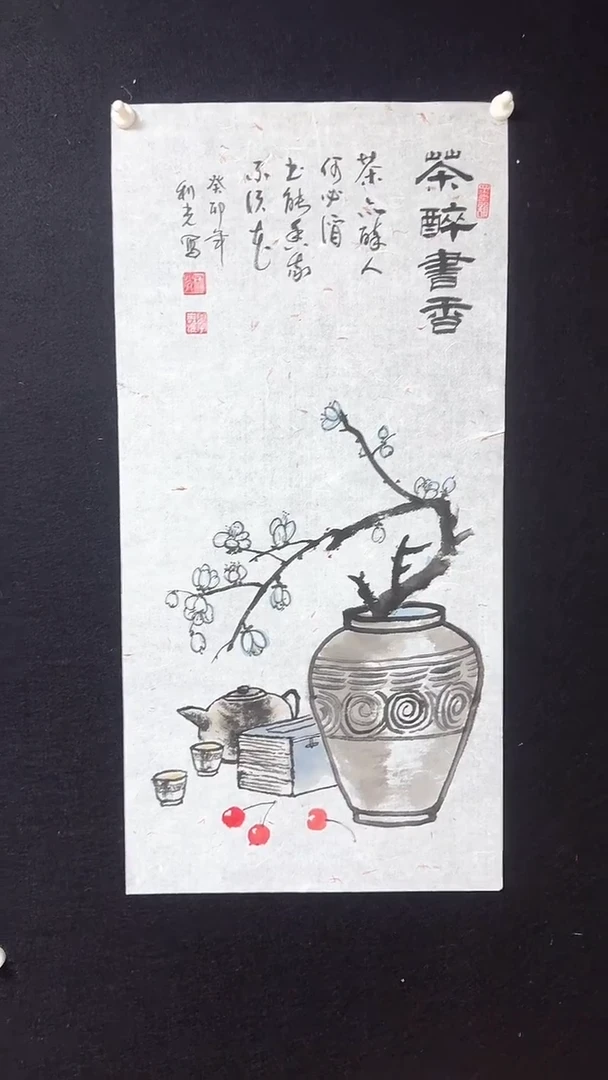 茶醉書香
茶亦醉人
何必酒
书能香我
不须花
癸卯年
利光寫